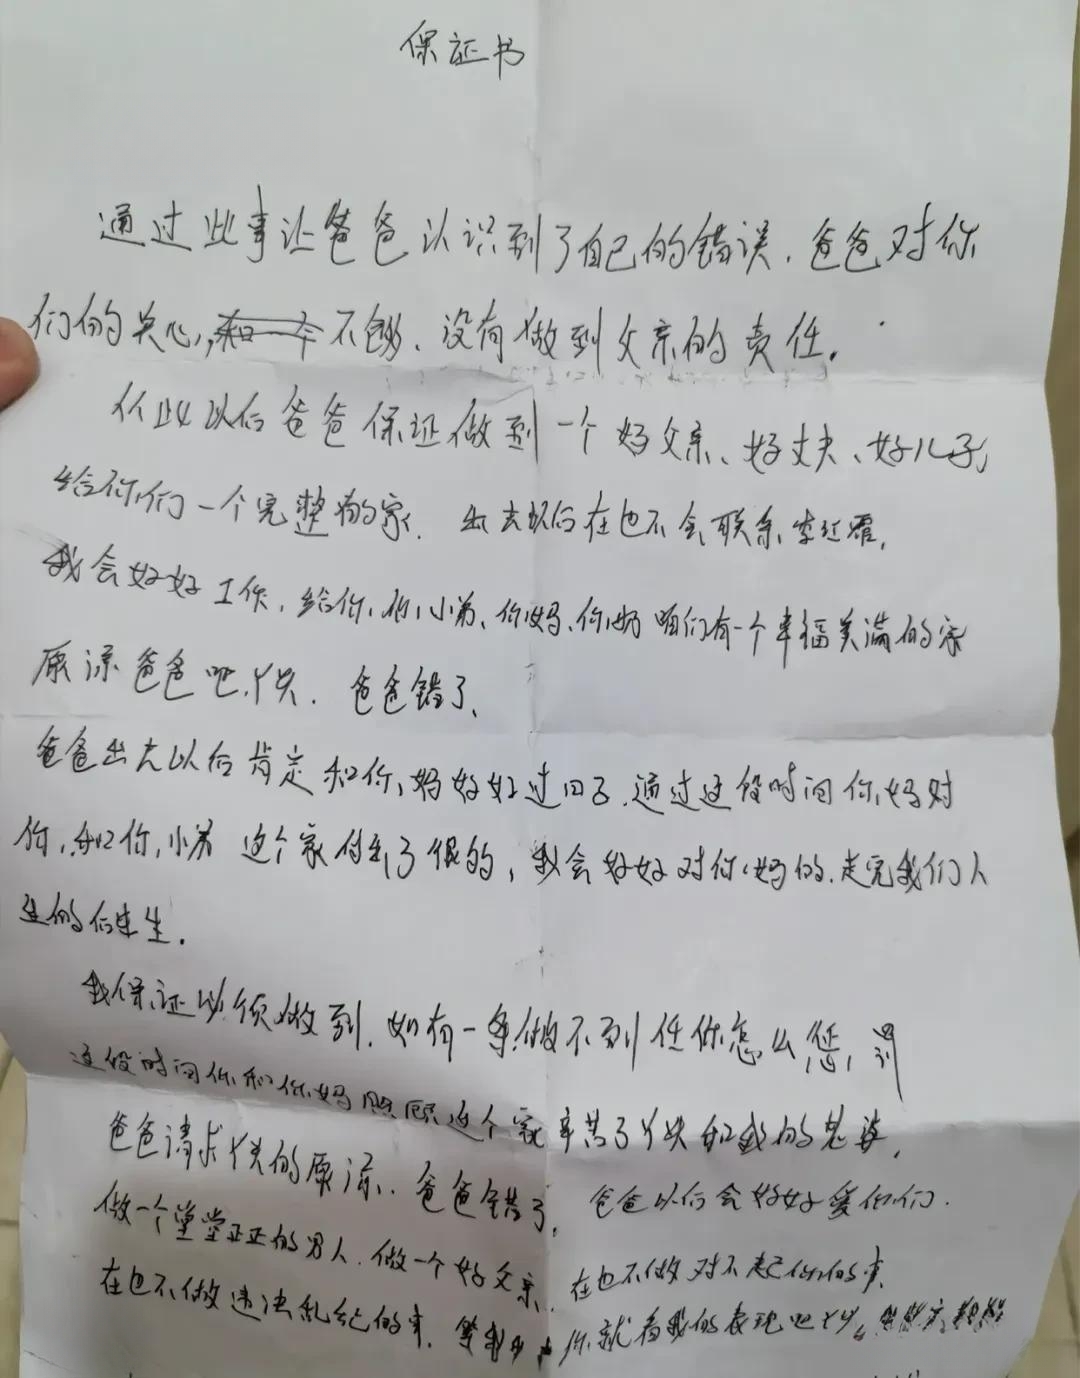 保证书
通过此事让爸爸认识到了自己的错误.爸爸对你
们的关心,不够、没有做到父亲的责任.
从此以后爸爸保证做到一个好父亲、好丈夫、好儿子,
给你们一个完整的家.出去以后在也不会联系李红霞,
我会好好工作,给你,你小弟、你妈、你奶咱们有一个幸福美满的家
原谅爸爸吧.丫头.爸爸错了、
爸爸出去以后肯定和你妈好好过日子.通过这段时间你妈对
你,和你小弟 这个家付出了很的,我会好好对你妈的.走完我们人
生的后半生.
我保证必须做到.如有一条做不到任你怎么惩罚
这段时间你和你妈照顾这个家辛苦了丫头和我的老婆,
爸爸请求丫头的原谅.爸爸错了,爸爸以后会好好爱你们.
做一个堂堂正正的男人.做一个好父亲.在也不做对不起你们的事.
在也不做违法乱纪的事.等我出 你就看我的表现吧丫头。